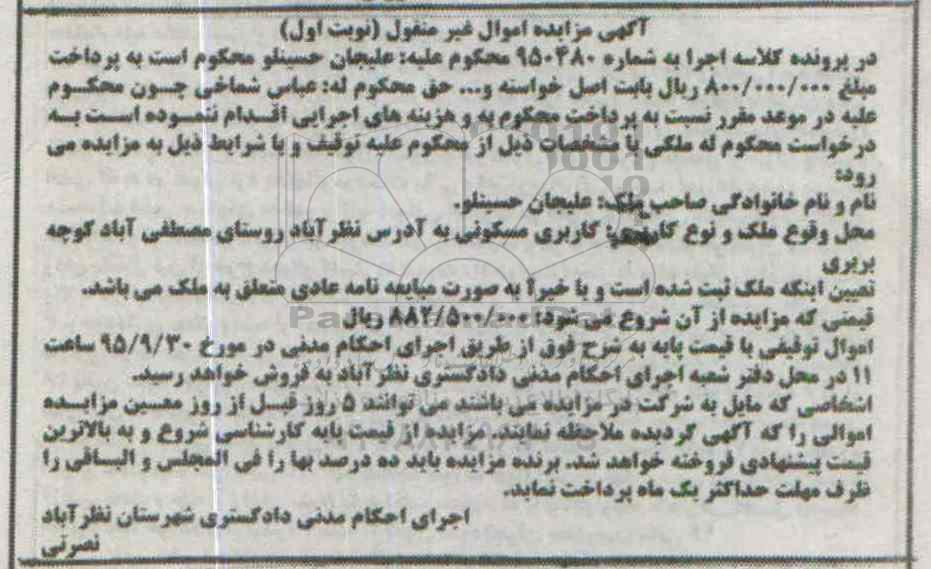 آگهی مزایده اموال غیر منقول (نوبت اول)
در پرونده کلاسه اجرا به شماره ۹۵۰۴۸۰ محکوم علیه: علیجان حسینلو محکوم است به پرداخت
مبلغ ۸۰۰/۰۰۰/۰۰۰ ریال بابت اصل خواسته و... حق محکوم له: عباس شماخی چون محکوم
علیه در موعد مقرر نسبت به پرداخت محکوم به و هزینه های اجرایی اقدام ننموده است به
درخواست محکوم له ملکی با مشخصات ذیل از محکوم علیه توقیف و با شرایط ذیل به مزایده می
رود:
نام و نام خانوادگی صاحب ملک: علیجان حسینلو.
محل وقوع ملک و نوع کاربری: کاربری مسکونی به آدرس نظرآباد روستای مصطفی آباد کوچه
بربری
تعیین اینکه ملک ثبت شده است و یا خیر؟ به صورت مبایعه نامه عادی متعلق به ملک می باشد.
قیمتی که مزایده از آن شروع می شود: ۸۸۲/۵۰۰/۰۰۰ ریال
اموال توقیفی با قیمت پایه به شرح فوق از طریق اجرای احکام مدنی در مورخ ۹۵/۹/۳۰ ساعت
۱۱ در محل دفتر شعبه اجرای احکام مدنی دادگستری نظرآباد به فروش خواهد رسید.
اشخاصی که مایل به شرکت در مزایده می باشند می توانند ۵ روز قبل از روز معین مزایده
اموالی را که آگهی گردیده ملاحظه نمایند. مزایده از قیمت پایه کارشناسی شروع و به بالاترین
قیمت پیشنهادی فروخته خواهد شد. برنده مزایده باید ده درصد بها را فی المجلس و الباقی را
ظرف مهلت حداکثر یک ماه پرداخت نماید.
اجرای احکام مدنی دادگستری شهرستان نظرآباد
نصرتی